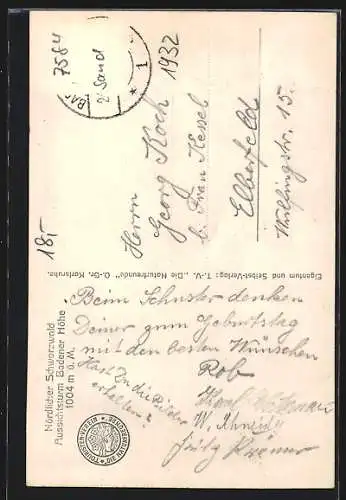 7584
2' Sand
1
1932
18,-
Herrn
Georg Koch
b. Frau Kessel
Elberfeld
Wülfingstr. 15.
Eigentum und Selbst-Verlag: T.-V. „Die Naturfreunde" O.-Gr. Karlsruhe.
Nördlicher Schwarzwald
Aussichtsturm Badener Höhe
1004 m ü. M.
Beim Schuster denken
Deiner zum Geburtstag
mit den besten Wünschen
Rob
Hast Du die Bilder
erhalten?
TOURISTEN-VEREIN DIE NATURFREUNDE